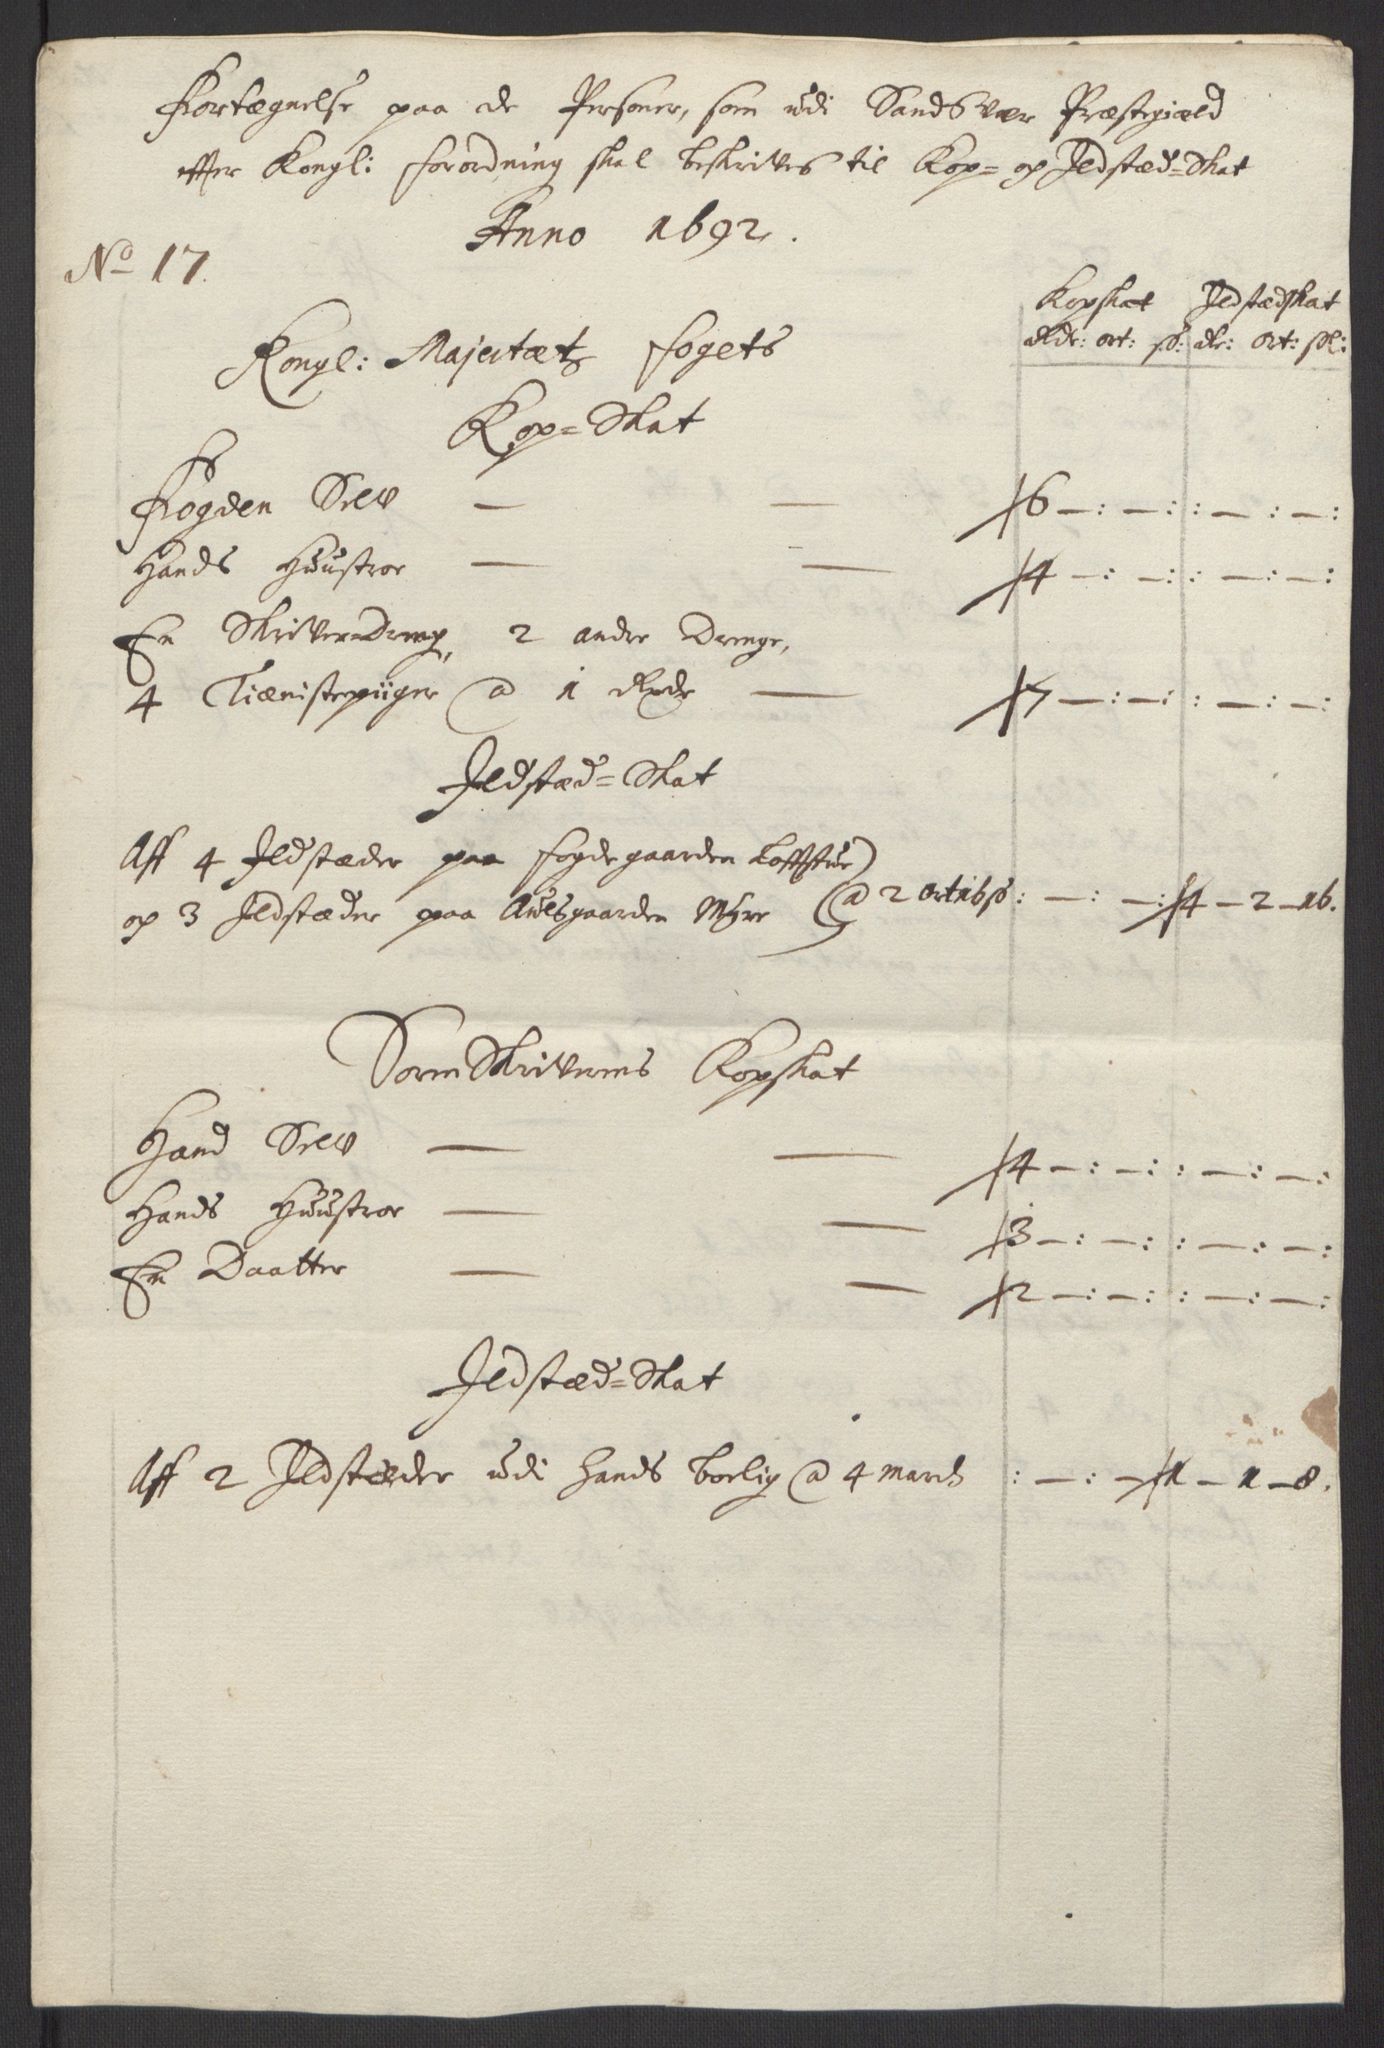 Fortægnelse paa de Personer, som udi Sandsvær Præstegiæld
effter Kongl: forordning skal beskrives til Kop= og Ildstæd=Skat
Anno 1692.
No 17.
Kopskat Ildstædskat
Rdr: ort: ß: dr: ort: sl:
Kongl: Majestætz fogets
Kop=Skat
Fogden Selv — — 6 —: —: : —: —:
Hands Huustroe — — 4 —: —: : —: —:
En Skriver=Dreng, 2 andre Drenge,
4 Tiænistepiiger @ 1 Rdr — 7 —: —: : —: —:
Ildstæd=Skat
Aff 4 Ildstæder paa fogdegaarden Loffstue
og 3 Ildstæder paa Aulsgaarden Myre @ 2 ort 16 ß : —: —: 4 — 2 — 16.
Sorenskriverens Kopskat
Hand Selv — — 4 —: —: : —: —:
Hands Huustroe — — 3 —: —: : —: —:
En Daatter — — 2 —: —: : —: —:
Ildstæd=Skat
Aff 2 Ildstæder udi hands boelig @ 4 march : —: — 1 — 1 — 8.